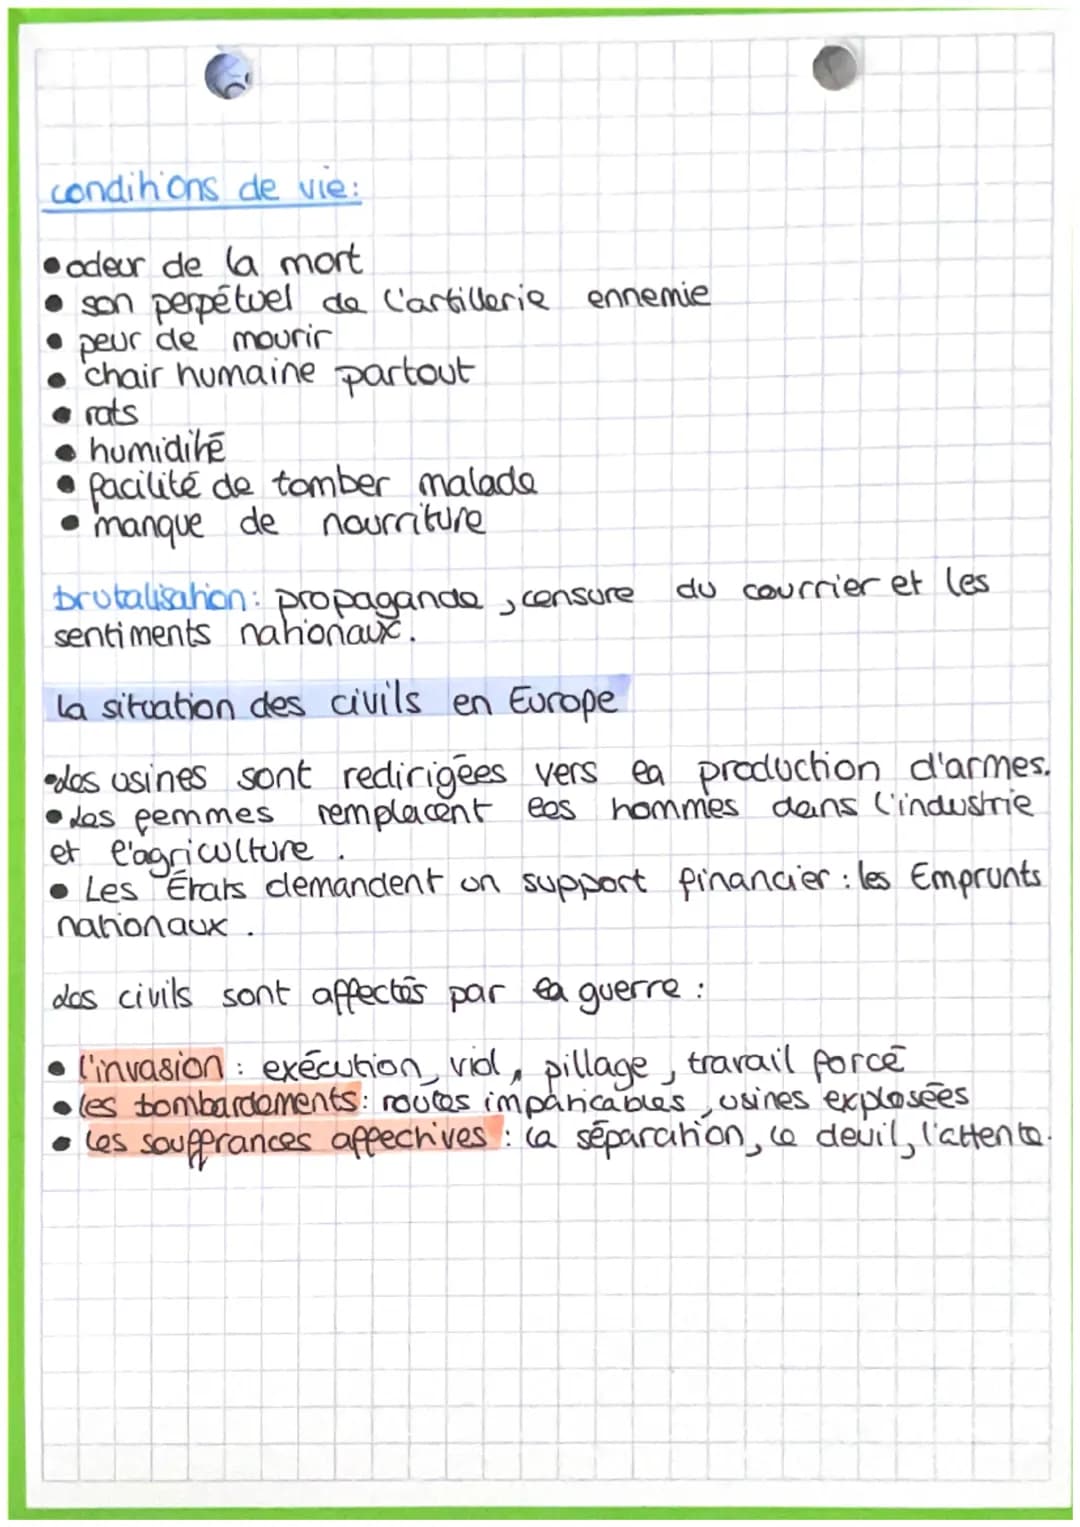 conditions de vie:
• odeur de la mort
• son perpétuel de l'artillerie ennemie
• peur de mourir
• chair humaine partout
• rats
• humidité
• facilité de tomber malade
• manque de nourriture
brutalisation: propagande, censure du courrier et les
sentiments nationaux.
la situation des civils en Europe
• Les usines sont redirigées vers la production d'armes.
• Les femmes remplacent les hommes dans l'industrie
et l'agriculture.
• Les États demandent un support financier : les Emprunts
nationaux.
Les civils sont affectés par la guerre :
• l'invasion : exécution, viol, pillage, travail forcé
• les bombardements: routes impraticables, usines explosées
• les souffrances affectives : la séparation, le deuil, l'attente.